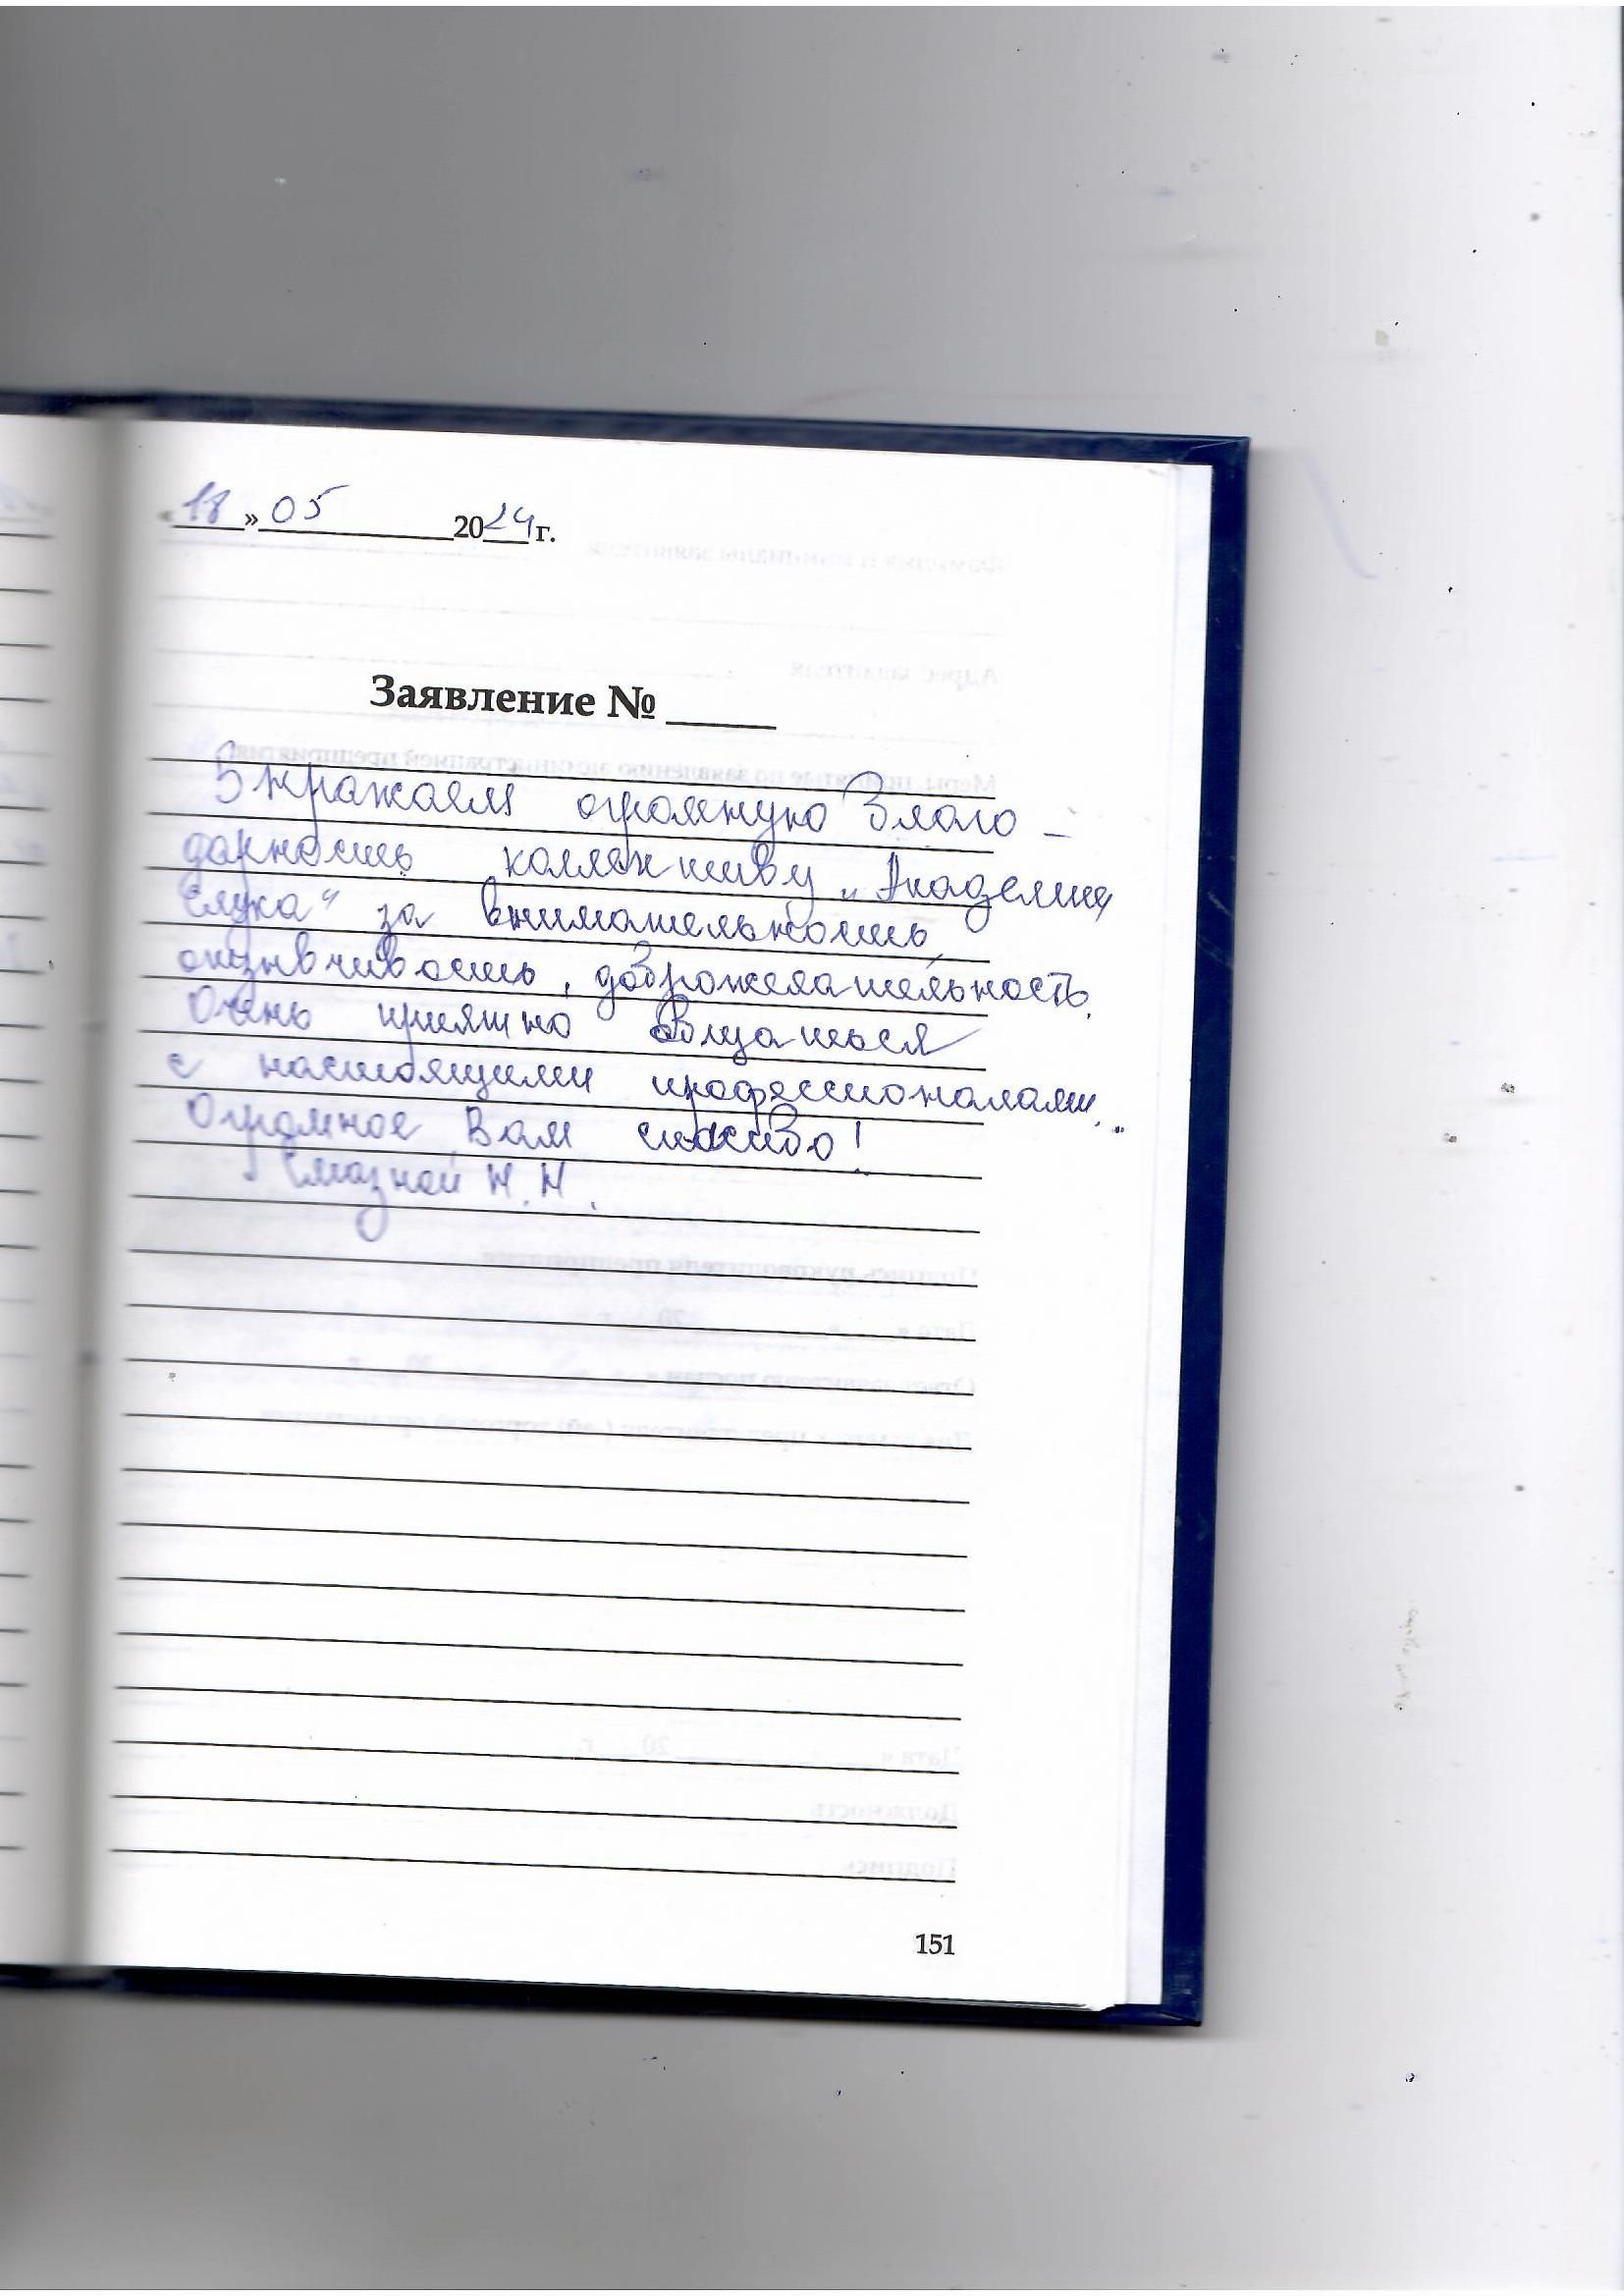 «18» 05 2024 г.
Заявление №
Выражаем огромную благо-
дарность коллективу „Академия
слуха“ за внимательность,
отзывчивость, доброжелательность.
Очень приятно общаться
с настоящими профессионалами.
Огромное Вам спасибо!
Н. Н.
151